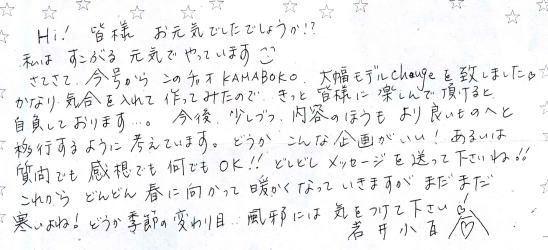 Hi! 皆様 お元気でしたでしょうか!?
私は すこぶる 元気で やっています
さてさて、今号から このチオKAMABOKO、大幅モデルchangeを致しました
かなり気合を入れて 作ってみたので、きっと 皆様に 楽しんで頂けると
自負しております…。 今後、少しづつ、内容のほうも より良いものへと
移行するように 考えています。どうか こんな企画がいい! あるいは
質問でも 感想でも 何でもOK!! どしどし メッセージを 送って下さいね!!
これから どんどん 春に向かって 暖かくなっていきますが まだまだ
寒いよね! どうか季節の変わり目、風邪には 気をつけて下さい!
岩井小百合